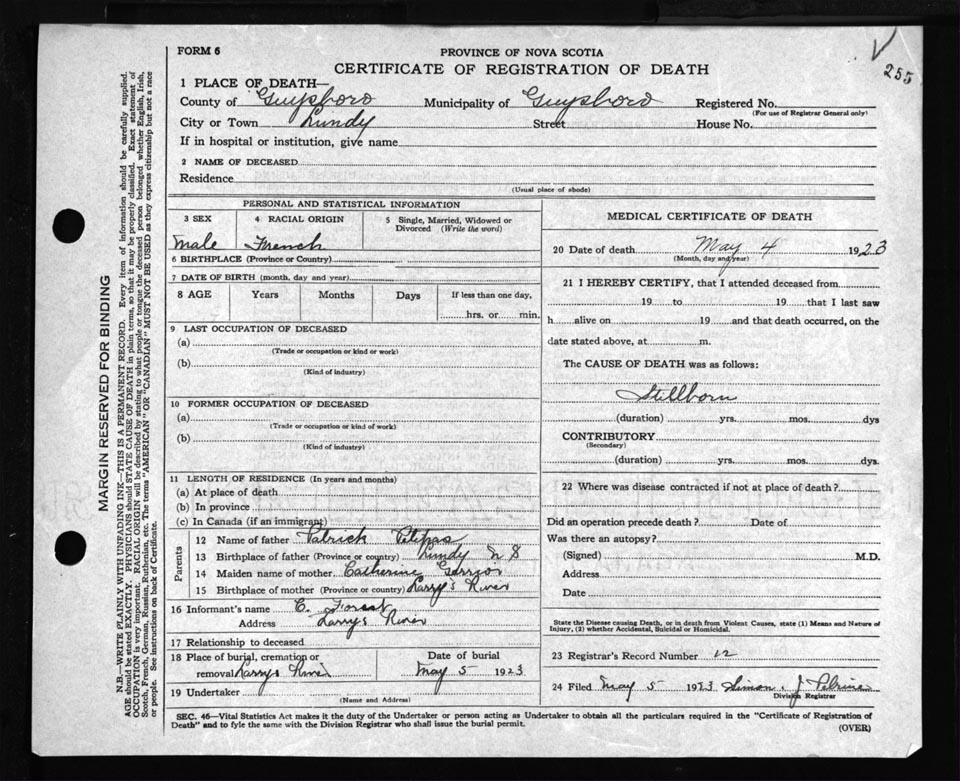 255
FORM 6
PROVINCE OF NOVA SCOTIA
CERTIFICATE OF REGISTRATION OF DEATH
1 PLACE OF DEATH—
County of Guysboro Municipality of Guysboro Registered No.
(For use of Registrar General only)
City or Town Lundy Street House No.
If in hospital or institution, give name
2 NAME OF DECEASED
Residence
(Usual place of abode)
PERSONAL AND STATISTICAL INFORMATION
3 SEX 4 RACIAL ORIGIN 5 Single, Married, Widowed or Divorced (Write the word)
Male French
6 BIRTHPLACE (Province or Country)
7 DATE OF BIRTH (month, day and year)
8 AGE Years Months Days If less than one day,
hrs. or min.
9 LAST OCCUPATION OF DECEASED
(a)
(Trade or occupation or kind or work)
(b)
(Kind of industry)
10 FORMER OCCUPATION OF DECEASED
(a)
(Trade or occupation or kind of work)
(b)
(Kind of industry)
11 LENGTH OF RESIDENCE (In years and months)
(a) At place of death
(b) In province
(c) In Canada (if an immigrant)
Parents
12 Name of father Patrick Petipas
13 Birthplace of father (Province or country) Lundy N S
14 Maiden name of mother Catherine
15 Birthplace of mother (Province or country) Larry's River
16 Informant's name C. Forest
Address Larrys River
17 Relationship to deceased
18 Place of burial, cremation or Date of burial
removal Larrys River May 5 1923
19 Undertaker
(Name and Address)
MEDICAL CERTIFICATE OF DEATH
20 Date of death May 4 1923
(Month, day and year)
21 I HEREBY CERTIFY, that I attended deceased from
19 to 19 that I last saw
h alive on 19 and that death occurred, on the
date stated above, at m.
The CAUSE OF DEATH was as follows:
Stillborn
(duration) yrs. mos. dys
CONTRIBUTORY
(Secondary)
(duration) yrs. mos. dys.
22 Where was disease contracted if not at place of death?
Did an operation precede death? Date of
Was there an autopsy?
(Signed) M.D.
Address
Date
State the Disease causing Death, or in death from Violent Causes, state (1) Means and Nature of
Injury, (2) whether Accidental, Suicidal or Homicidal.
23 Registrar's Record Number 12
24 Filed May 5 1923 Simon J
Division Registrar
SEC. 46—Vital Statistics Act makes it the duty of the Undertaker or person acting as Undertaker to obtain all the particulars required in the "Certificate of Registration of
Death" and to fyle the same with the Division Registrar who shall issue the burial permit.
(OVER)
MARGIN RESERVED FOR BINDING
N.B.—WRITE PLAINLY WITH UNFADING INK—THIS IS A PERMANENT RECORD. Every item of information should be carefully supplied.
AGE should be stated EXACTLY. PHYSICIANS should STATE CAUSE OF DEATH in plain terms, so that it may be properly classified. Exact statement of
OCCUPATION is very important. RACIAL ORIGIN will be described by stating to what people or tongue the deceased person belonged whether English, Irish,
Scotch, French, German, Russian, Ruthenian, etc. The terms "AMERICAN" OR "CANADIAN" MUST NOT BE USED as they express citizenship but not a race
or people. See instructions on back of Certificate.